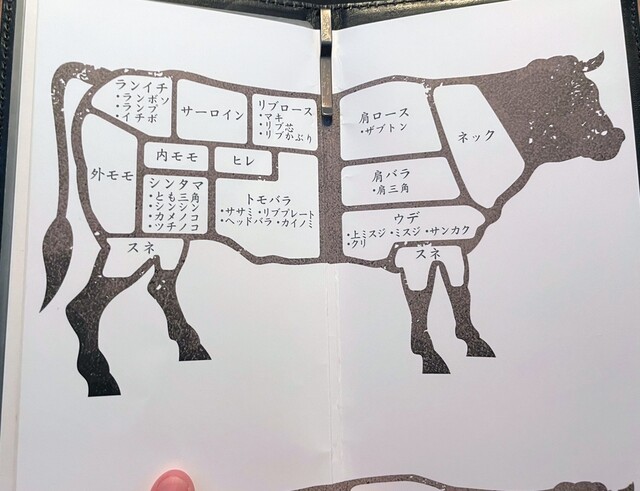 ランイチ
・ランボソ
・ランプ
・イチボ
サーロイン
リブロース
・マキ
・リブ芯
・リブかぶり
肩ロース
・ザブトン
ネック
外モモ
内モモ
ヒレ
シンタマ
・とも三角
・シンシン
・カメノコ
・ツチノコ
トモバラ
・ササミ・リブプレート
・ヘッドバラ・カイノミ
肩バラ
・肩三角
ウデ
・上ミスジ・ミスジ・サンカク
・クリ
スネ
スネ